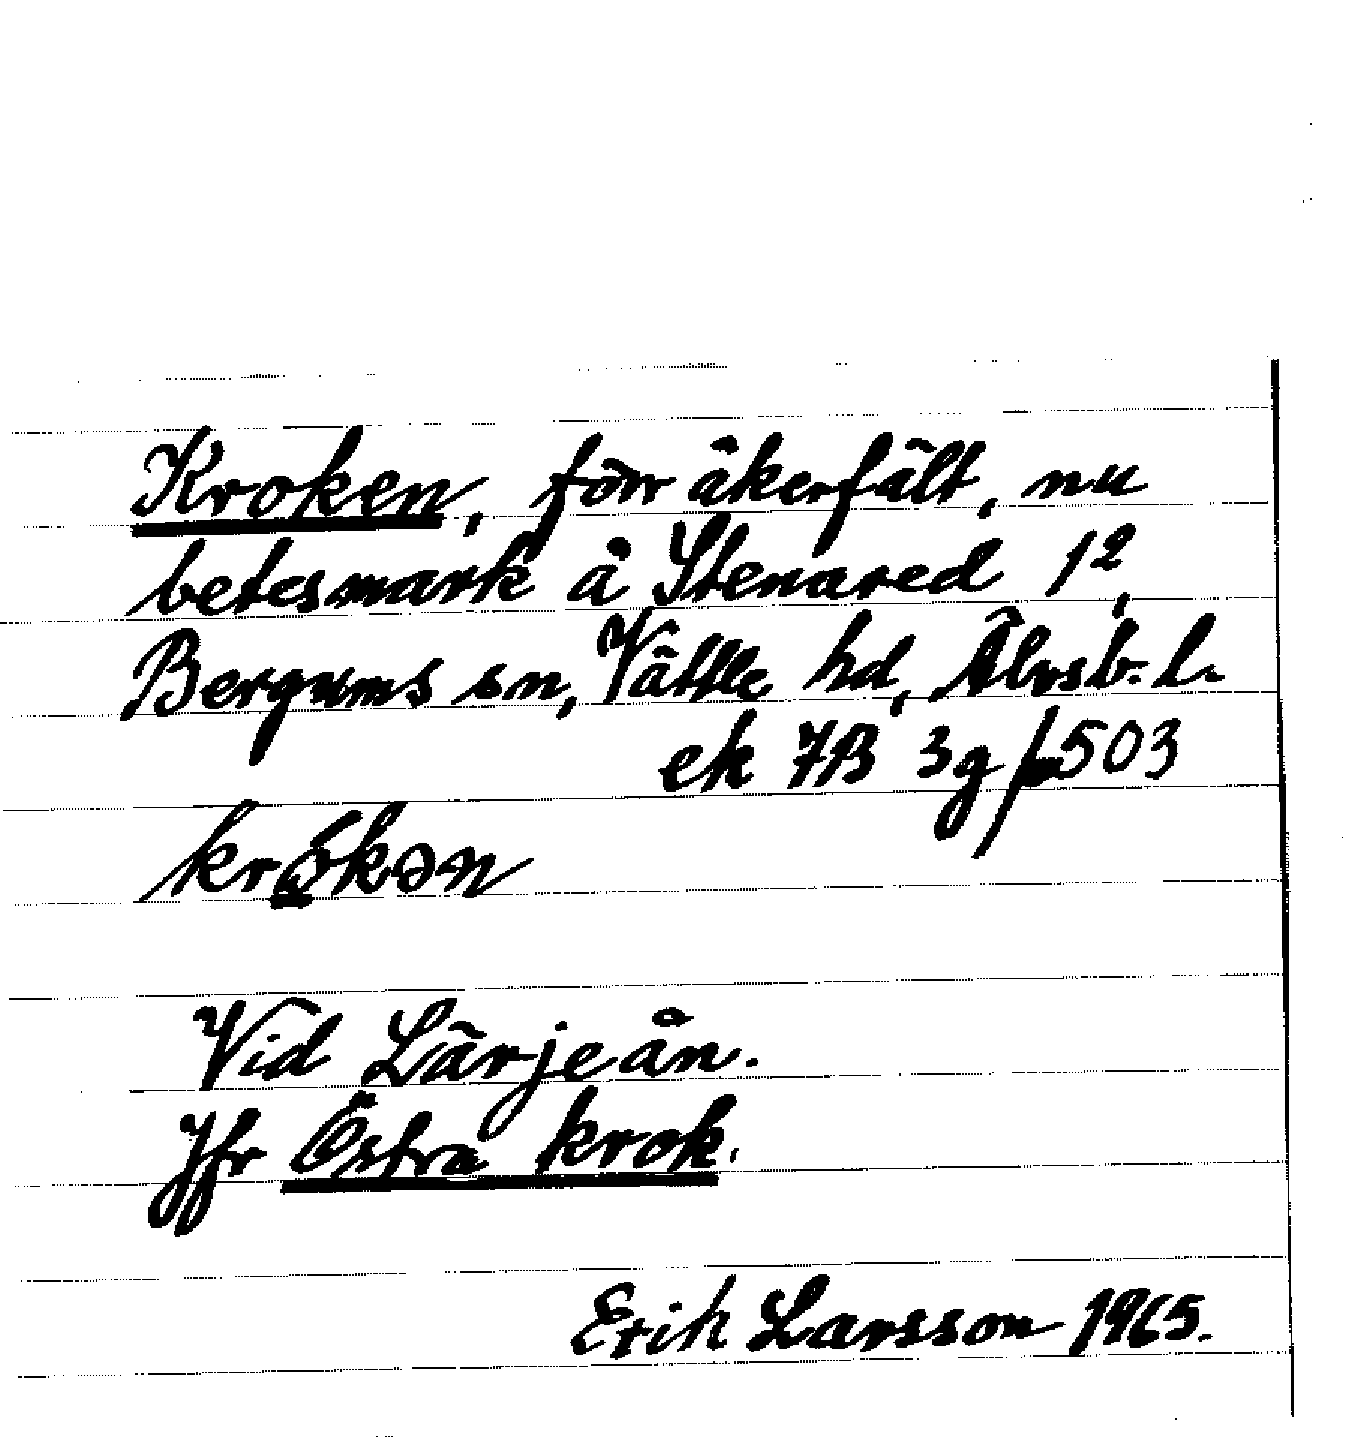 Kroken, förr åkerfält, nu
betesmark å Stenared 1²,
Bergums sn, Vättle hd, Älvsb. l.
ek 7B 3g/503
krókən
Vid Lärjeån.
Jfr Östra krok.
Erik Larsson 1965.